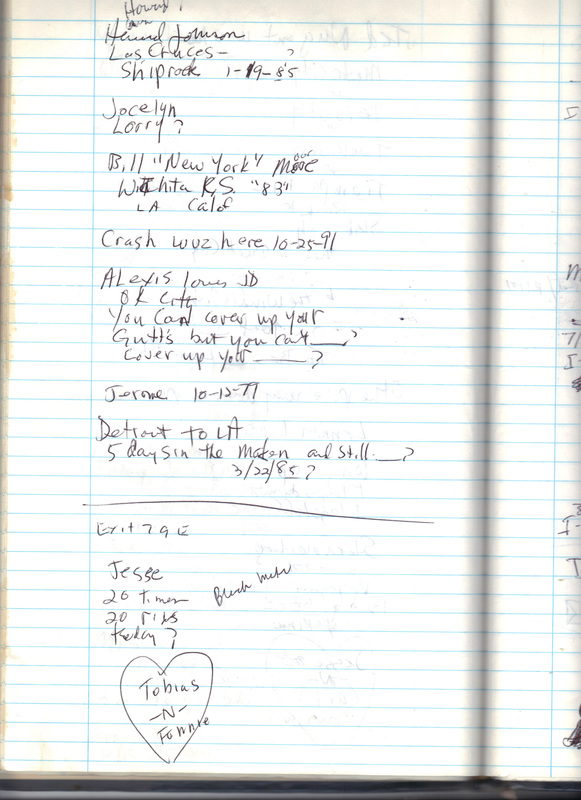 Johnson
Las Cruces - ?
Shiprock 1-19-85
Jocelyn
Lorry?
Bill "New York" Moore
Wichita K.S. "83"
LA Calof
Crash wuz here 10-25-91
ALexis Jones JD
OK City
You Can cover up your
Gutt's but you can't ___?
cover up your ___?
Jerome 10-12-79
Detroit to LA
5 days in the maken and still ___?
3/22/85?
Exit 79E
Jesse
20 times
20 rides
today?
Tobias
-N-